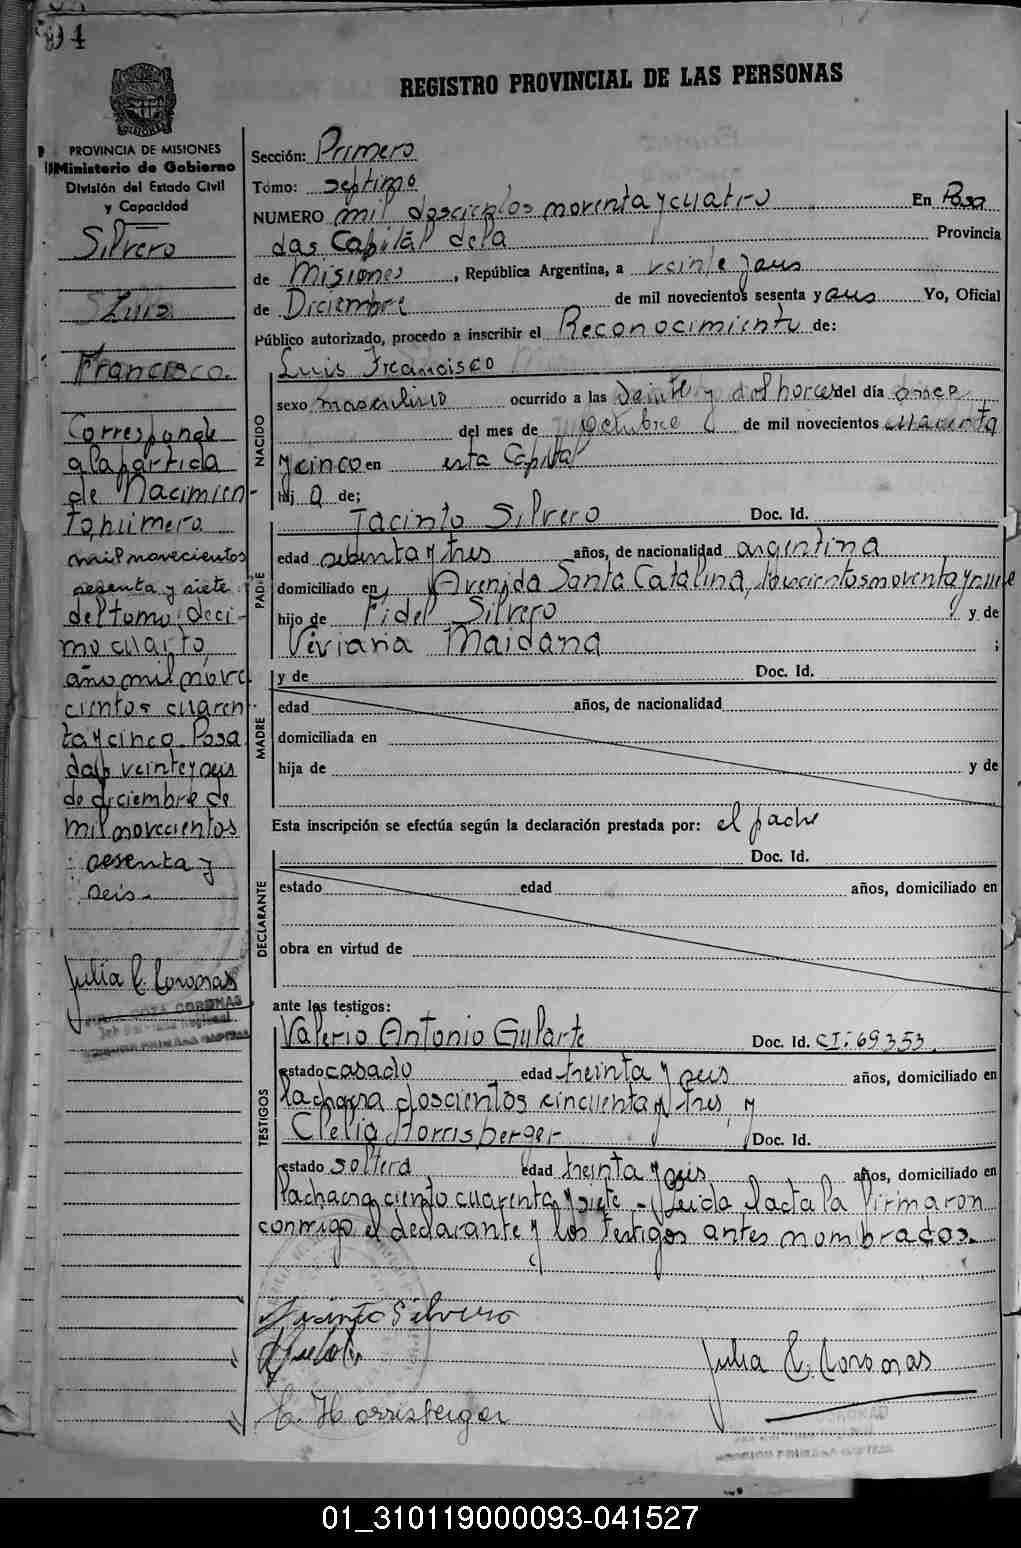 94
REGISTRO PROVINCIAL DE LAS PERSONAS
PROVINCIA DE MISIONES
Ministerio de Gobierno
División del Estado Civil
y Capacidad
Silvero
Luis
Francisco.
Corresponde
a la partida
de Nacimien-
to, número
mil novecientos
sesenta y siete
del tomo déci-
mo cuarto,
año mil nove
cientos cuaren
ta y cinco. Posa
das veinte y seis
de diciembre de
mil novecientos
sesenta y
seis.-
Julia C. Coronas
Sección: Primero
Tomo: septimo
NUMERO mil doscientos noventa y cuatro En Posa
das Capital de la Provincia
de Misiones, República Argentina, a veinte y seis
de Diciembre de mil novecientos sesenta y seis Yo, Oficial
Público autorizado, procedo a inscribir el Reconocimiento de:
NACIDO
Luis Francisco
sexo masculino ocurrido a las veinte y dos horas del día once
del mes de Octubre de mil novecientos cuarenta
y cinco en esta Capital
hij o de;
PADRE
Jacinto Silvero Doc. Id.
edad setenta y tres años, de nacionalidad argentina
domiciliado en Avenida Santa Catalina, doscientos noventa y nueve
hijo de Fidel Silvero y de
Viviana Maidana ;
MADRE
y de Doc. Id.
edad años, de nacionalidad
domiciliada en
hija de y de
Esta inscripción se efectúa según la declaración prestada por: el padre
DECLARANTE
Doc. Id.
estado edad años, domiciliado en
obra en virtud de
ante los testigos:
TESTIGOS
Valerio Antonio Gularte Doc. Id. CI: 69353
estado casado edad treinta y seis años, domiciliado en
la chacra doscientos cincuenta y tres, y
Clelia Horrisberger Doc. Id.
estado soltera edad treinta y seis años, domiciliado en
la chacra ciento cuarenta y siete - Leída el acta la firmaron
conmigo el declarante y los testigos antes nombrados.
Jacinto Silvero
Julia C. Coronas
C. Horrisberger
01_310119000093-041527